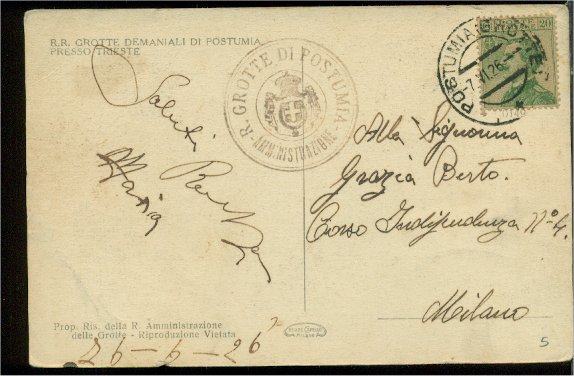 R.R. GROTTE DEMANIALI DI POSTUMIA
PRESSO TRIESTE
R. GROTTE DI POSTUMIA
AMMINISTRAZIONE
POSTUMIA GROTTE
7.VI.26
20
Saluti
Maria
Alla Signorina
Grazia Berto.
Corso Indipendenza Nº 4.
Milano
Prop. Ris. della R. Amministrazione
delle Grotte - Riproduzione Vietata
26-6-26
5